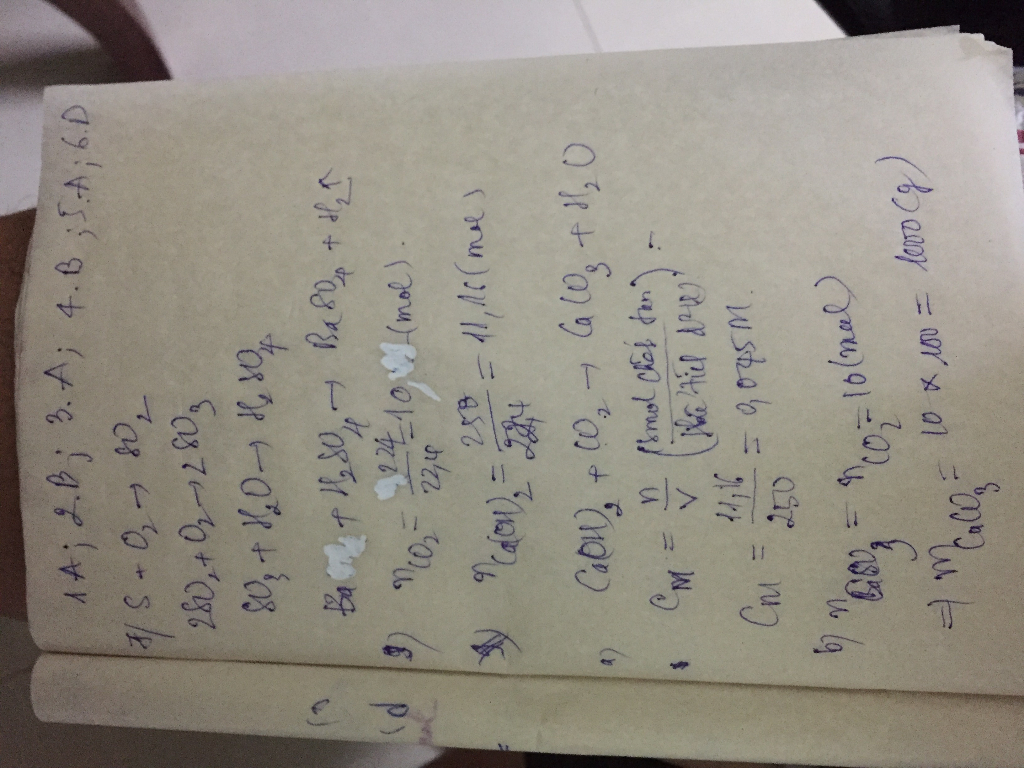 1A; 2.B; 3.A; 4.B; 5.A; 6.D
7/ S + O2 → SO2
2SO2 + O2 → 2SO3
SO3 + H2O → H2SO4
Ba + H2SO4 → BaSO4 + H2↑
9) nCO2 = 224/22,4 = 10 (mol).
nCa(OH)2 = 250/22,4 = 11,16 (mol)
a) Ca(OH)2 + CO2 → CaCO3 + H2O
CM = n/V (Số mol chất tan/thể tích).
CM = 11,16/250 = 0,045M.
b) n = nCO2 = 10 (mol)
=> mCaCO3 = 10 x 100 = 1000 (g)